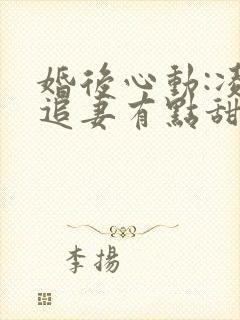 婚後心動:凌
追妻有點甜
李揚